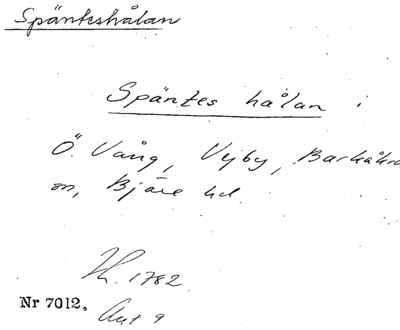 Spänteshålan
Späntes hålan i
Ö. Vång, Vejby, Barkåkra
sn, Bjäre hd.
1782
Nr 7012.
Akt 9